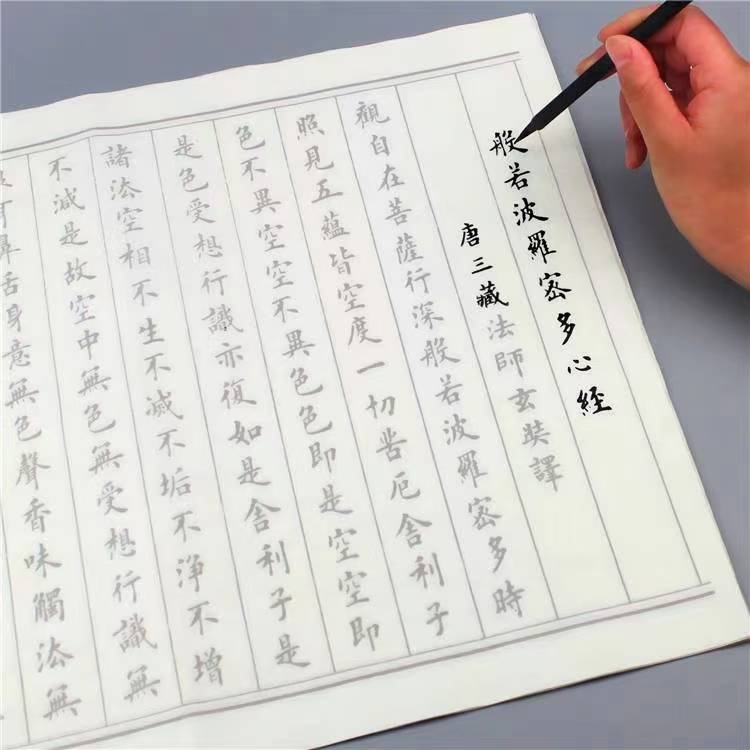 般若波羅密多心經
唐三藏法師玄奘譯
觀自在菩薩行深般若波羅密多時
照見五蘊皆空度一切苦厄舍利子
色不異空空不異色色即是空空即
是色受想行識亦復如是舍利子是
諸法空相不生不滅不垢不淨不增
不減是故空中無色無受想行識無
耳鼻舌身意無色聲香味觸法無